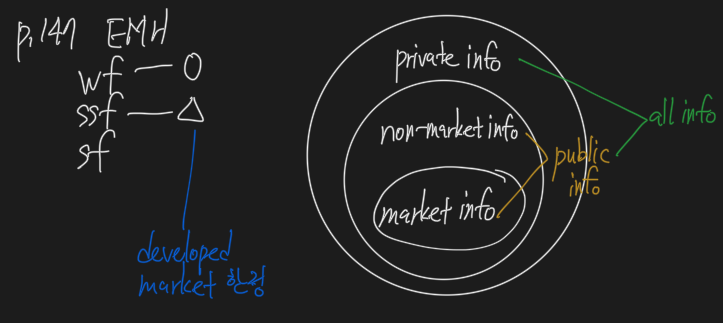 p.147 EMH
wf — O
ssf — △
sf
developed
market 한정
private info
non-market info
market info
public
info
all info